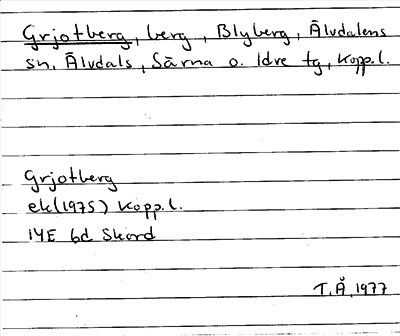 Grjotberg, berg, Blyberg, Älvdalens
sn. Älvdals, Särna o. Idre tg, Kopp.l.
Grjotberg
ek(1975) Kopp.l.
14E bd Skord
T.Å. 1977